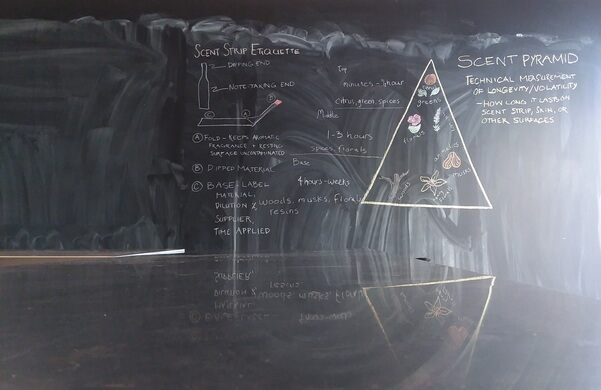 SCENT STRIP ETIQUETTE
DIPPING END
NOTE-TAKING END
C
A
B
A FOLD - KEEPS AROMATIC
FRAGRANCE + RESTING
SURFACE UNCONTAMINATED
B DIPPED MATERIAL
C BASE LABEL
MATERIAL,
DILUTION %
SUPPLIER,
TIME APPLIED
Top
minutes - 1/2 hour
citrus, green, spices
Middle
1-3 hours
spices, florals
Base
4 hours - weeks
woods, musks, florals
resins
citrus
greens
florals
musks
SCENT PYRAMID
TECHNICAL MEASUREMENT
OF LONGEVITY/VOLATILITY
- HOW LONG IT LASTS ON
SCENT STRIP, SKIN, OR
OTHER SURFACES